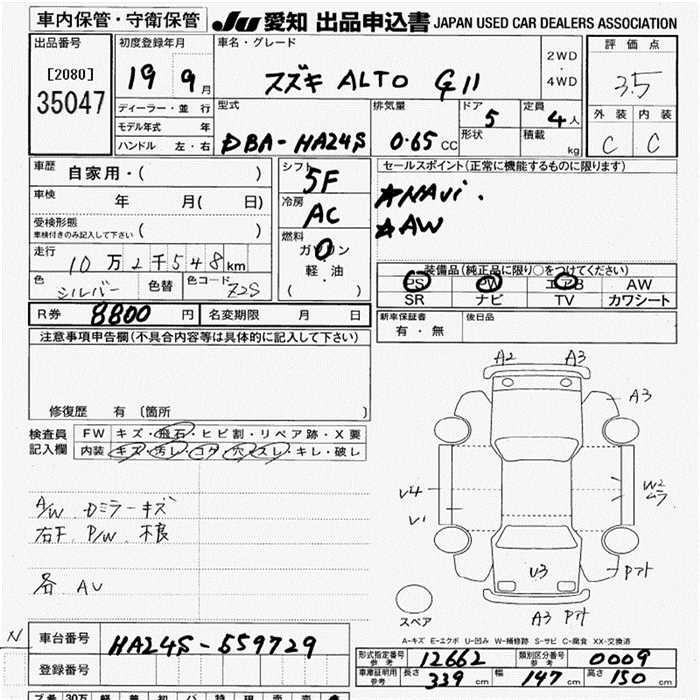 車内保管・守衛保管 JU 愛知 出品申込書 JAPAN USED CAR DEALERS ASSOCIATION
出品番号 初度登録年月 車名・グレード 2WD・4WD 評価点
[2080] 19 9月 スズキ ALTO GII 3.5
35047 ディーラー・並行 型式 排気量 ドア 定員 外装 内装
モデル年式 年 DBA-HA24S 0.65CC 5 4人 C C
ハンドル 左・右 形状 積載 kg
車歴 自家用・( ) シフト 5F セールスポイント(正常に機能するものに限ります)
車検 年 月( 日) 冷房 AC ★NAVi.
受検形態 ★AW
車検付きのみ記入して下さい ( ) 燃料 ガソリン
走行 10万2千548km 軽・油
色 シルバー 色替 色コード Z2S ( ) 装備品(純正品に限り○をつけてください)
PS PW エアB AW
SR ナビ TV カワシート
R券 8800円 名変期限 月 日 新車保証書 有・無 後日品
注意事項申告欄(不具合内容等は具体的に記入して下さい)
修復歴 有 〔箇所 〕
検査員記入欄 FW キズ・飛石・ヒビ割・リペア跡・X要
内装 キズ・汚レ・コゲ・穴・スレ・キレ・破レ
A2 A3
A3
A/W Dミラーキズ
右F P/W 不良
各 AU
U4 W2 ムラ
U1
U3 Pアト
スペア A3 Pアト
A-キズ E-エクボ U-凹み W-補修跡 S-サビ C-腐食 XX-交換済
N 車台番号 HA24S-559729
登録番号
形式指定番号 参考 12662 類別区分番号 参考 0009
車庫証明用 参考 長さ 339cm 幅 147cm 高さ 150cm